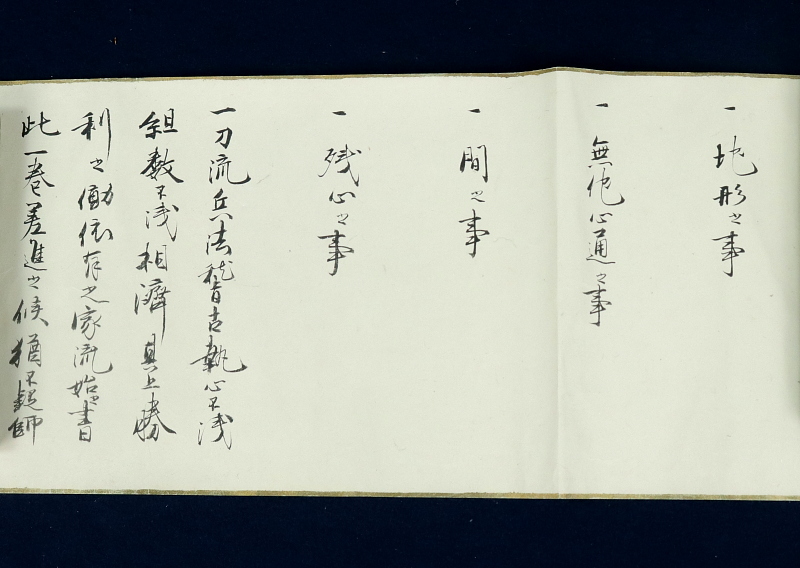 一 地形之事
一 無他心通之事
一 間之事
一 残心之事
一刀流兵法稽古執心不浅
組数不残相済其上勝
利之働依有之家流始之書
此一巻差進之候猶不疑師